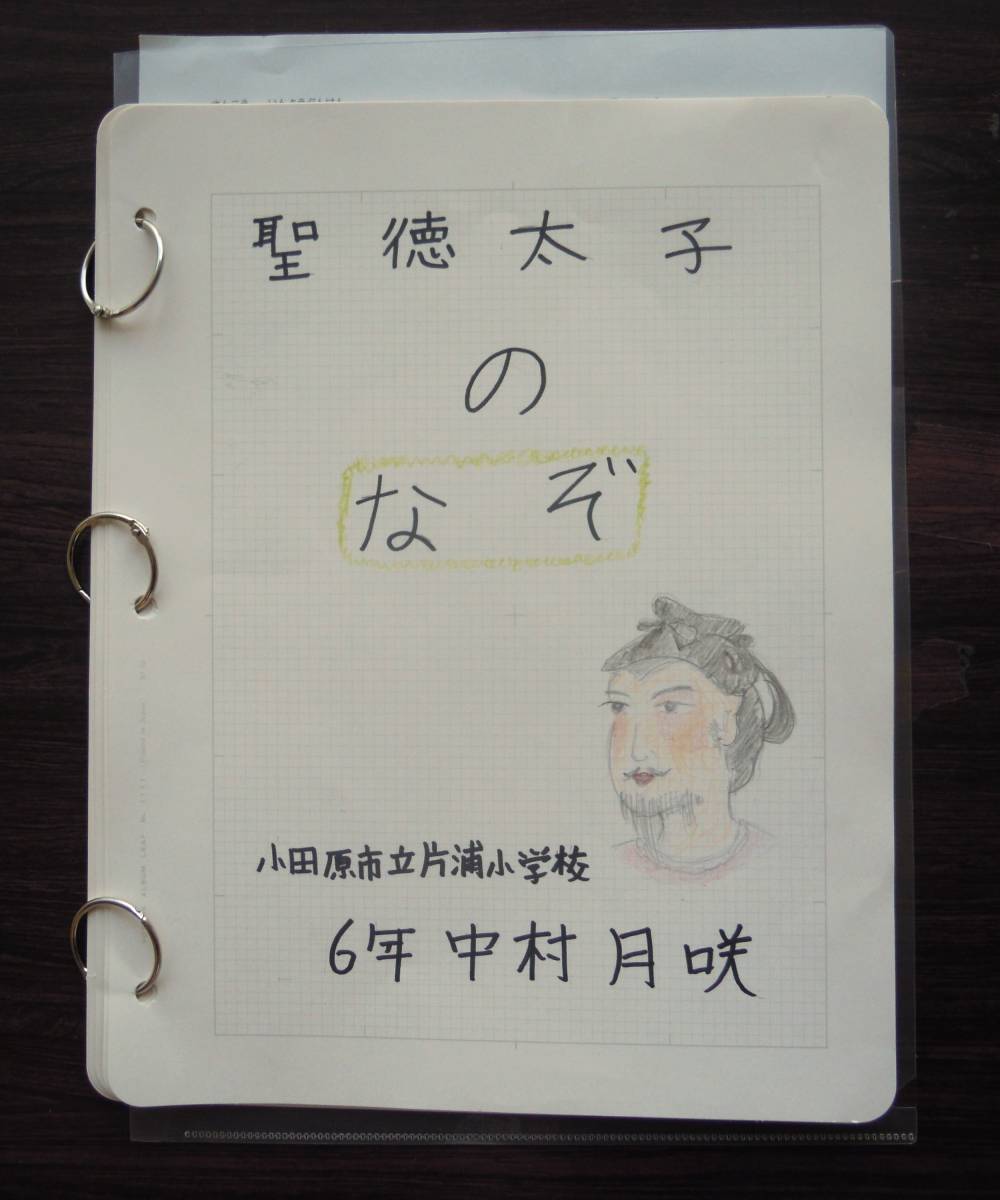 聖徳太子
の
なぞ
小田原市立片浦小学校
6年 中村 月咲